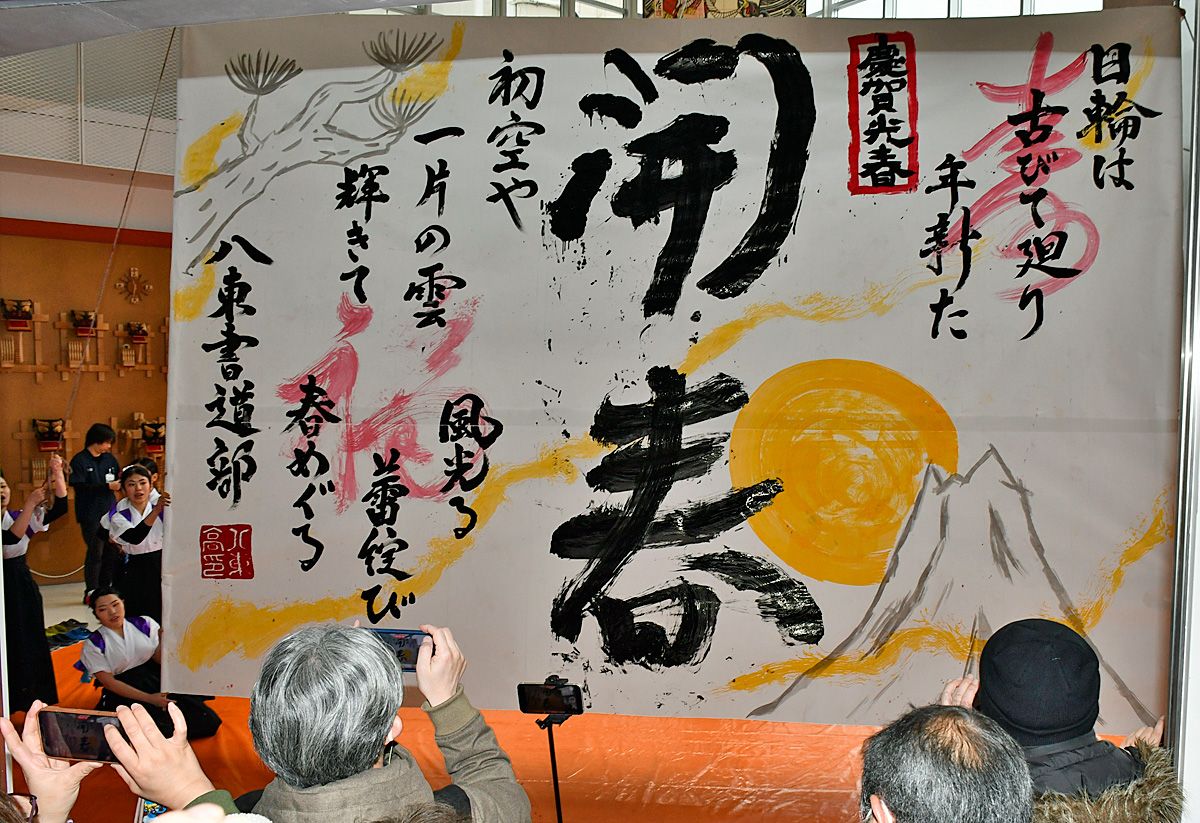 日輪は
古びて廻り
年新た
慶賀光春
開春
初空や
一片の雲
輝きて
風光る
蕾綻び
春めぐる
八東書道部